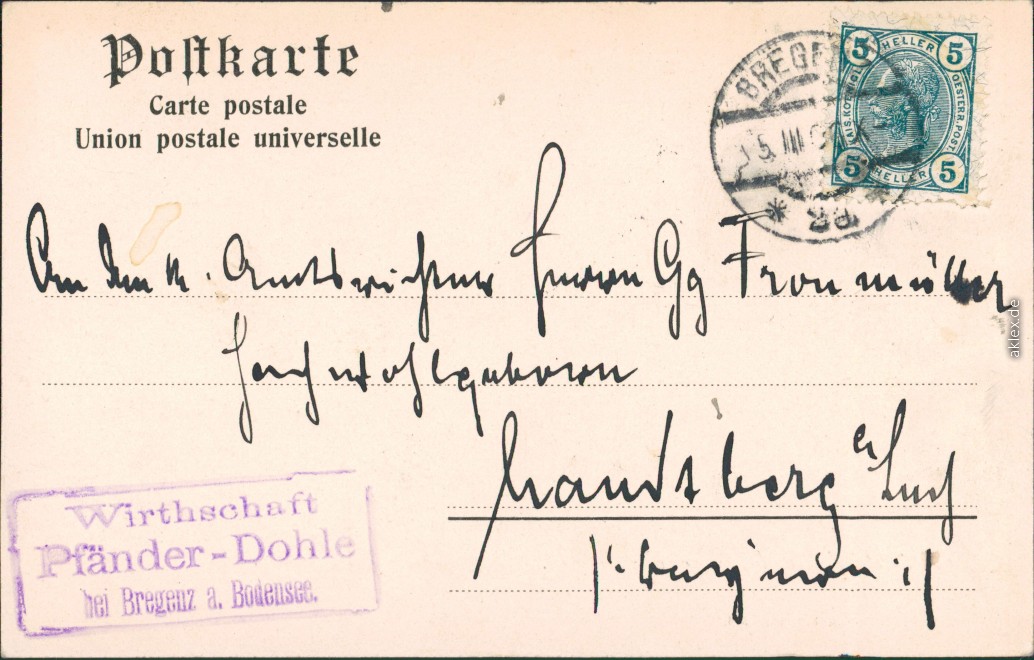 Postkarte
Carte postale
Union postale universelle
BREGENZ
5 HELLER 5
KAIS. KÖNIGL. OESTERR. POST.
5 HELLER 5
An den k. Amtsrichter Herrn Gg Fronmüller
Hochwohlgeboren
Landsberg a/Lech
/: Bayern :/
Wirthschaft
Pfänder-Dohle
bei Bregenz a. Bodensee.
aklex.de